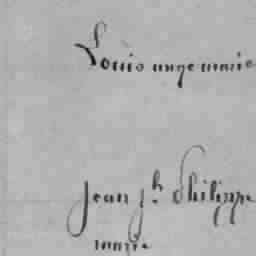 Louis ange marie
Jean jh Philippe
marie